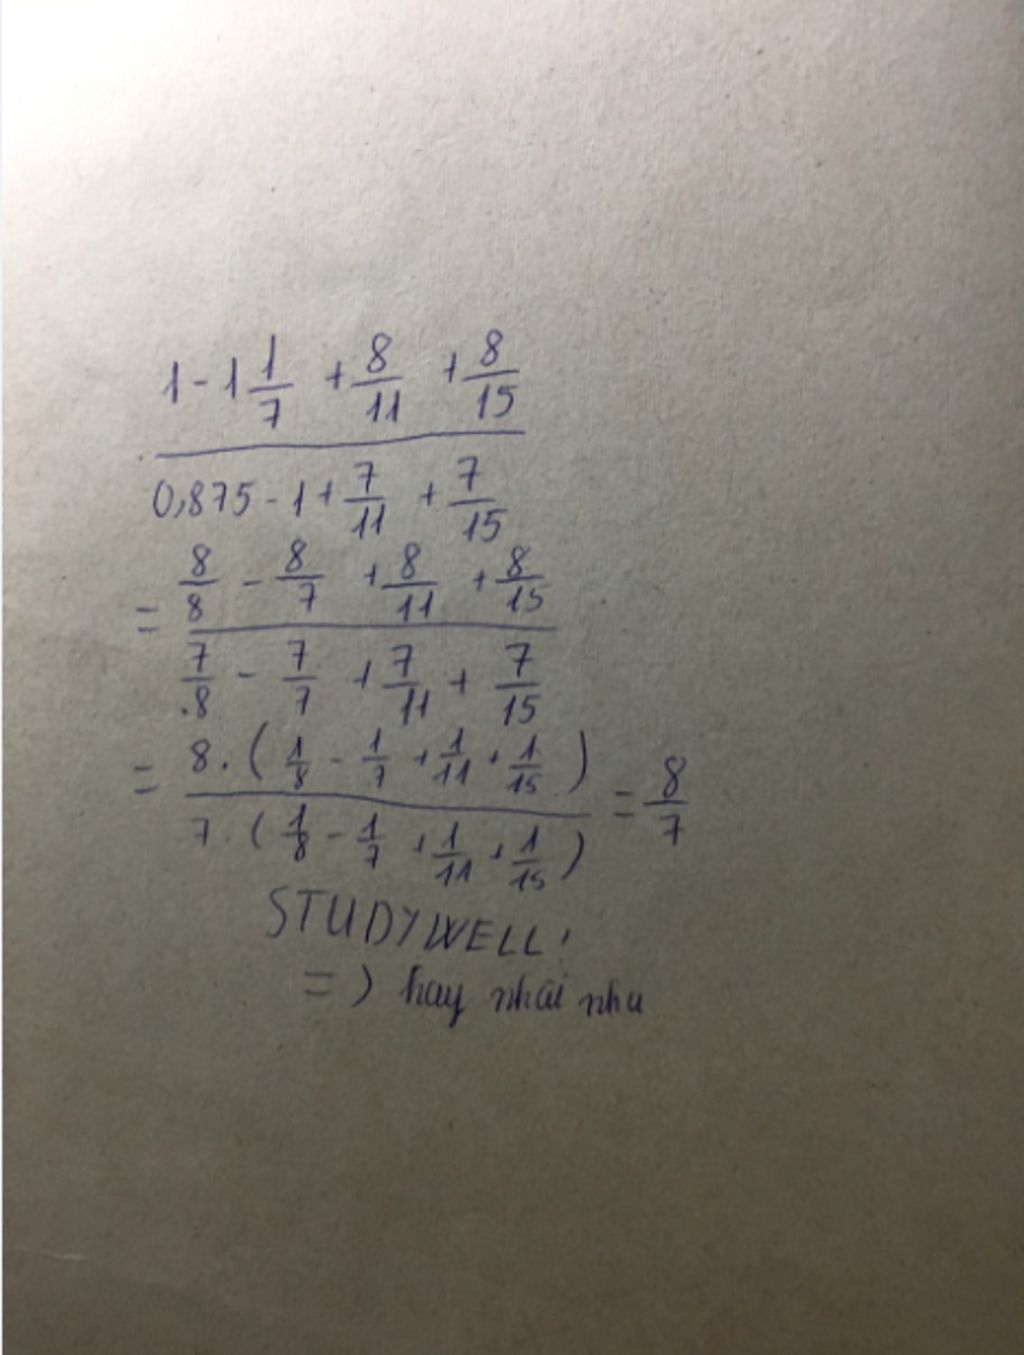 1 - 1 1/7 + 8/11 + 8/15
0,875 - 1 + 7/11 + 7/15
= 8/8 - 8/7 + 8/11 + 8/15
7/8 - 7/7 + 7/11 + 7/15
= 8.(1/8 - 1/7 + 1/11 + 1/15) = 8/7
7.(1/8 - 1/7 + 1/11 + 1/15)
STUDY WELL!
=) hay nhất nha